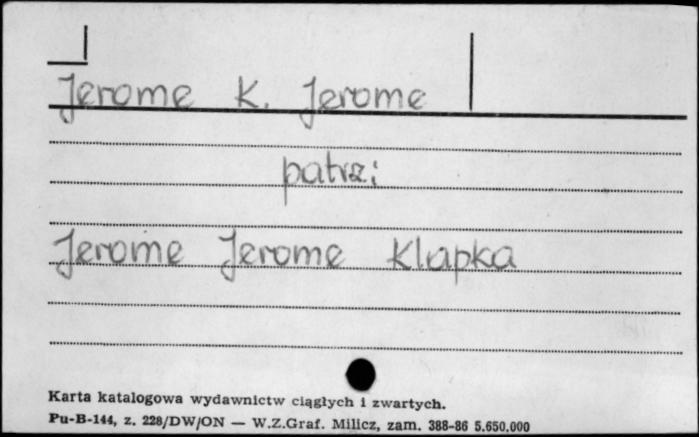 Jerome K. Jerome
patrz:
Jerome Jerome Klapka
Karta katalogowa wydawnictw ciągłych i zwartych.
Pu-B-144, z. 228/DW/ON — W.Z.Graf. Milicz, zam. 388-86 5.650.000